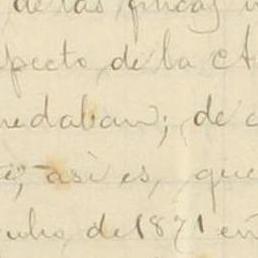 de las fincas
specto de la
nedaban; de
así es, que
de 1871 en